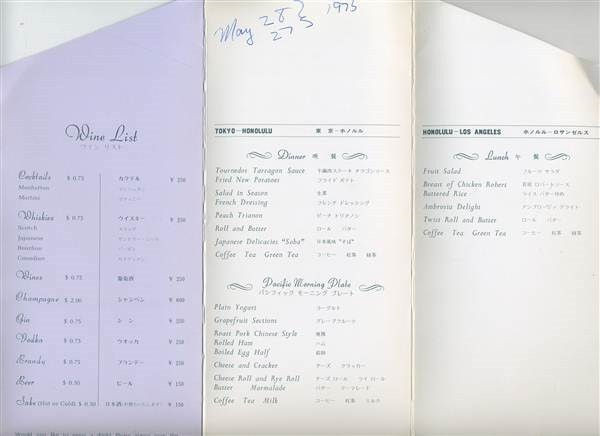 May 28 } 1975
27
Wine List
ワイン リスト
Cocktails $ 0.75 カクテル ¥ 250
Manhattan マンハッタン
Martini マティーニ
Whiskies $ 0.75 ウイスキー ¥ 250
Scotch
Japanese
Bourbon バーボン
Canadian カナディアン
Wines $ 0.75 葡萄酒 ¥ 250
Champagne $ 2.00 シャンペン ¥ 600
Gin $ 0.75 ジン ¥ 250
Vodka $ 0.75 ウオッカ ¥ 250
Brandy $ 0.75 ブランデー ¥ 250
Beer $ 0.50 ビール ¥ 150
Sake (Hot or Cold) $ 0.50 日本酒 ¥ 150
TOKYO—HONOLULU 東 京—ホノルル
Dinner 晩 餐
Tournedos Tarragon Sauce 牛繊肉ステーキ タラゴンソース
Fried New Potatoes フライド ポテト
Salad in Season 生菜
French Dressing フレンチ ドレッシング
Peach Trianon ピーチ トリアノン
Roll and Butter ロール バター
Japanese Delicacies "Soba" 日本風味 "そば"
Coffee Tea Green Tea コーヒー 紅茶 緑茶
Pacific Morning Plate
パシフィック モーニング プレート
Plain Yogurt ヨーグルト
Grapefruit Sections グレープフルーツ
Roast Pork Chinese Style 焼豚
Rolled Ham ハム
Boiled Egg Half 鶏卵
Cheese and Cracker チーズ クラッカー
Cheese Roll and Rye Roll チーズ ロール ライ ロール
Butter Marmalade バター マーマレード
Coffee Tea Milk コーヒー 紅茶 ミルク
HONOLULU—LOS ANGELES ホノルル—ロサンゼルス
Lunch 午 餐
Fruit Salad フルーツ サラダ
Breast of Chicken Robert 若鶏 ロバートソース
Buttered Rice ライス バター炒め
Ambrosia Delight アンブロージァ デライト
Twist Roll and Butter ロール バター
Coffee Tea Green Tea コーヒー 紅茶 緑茶